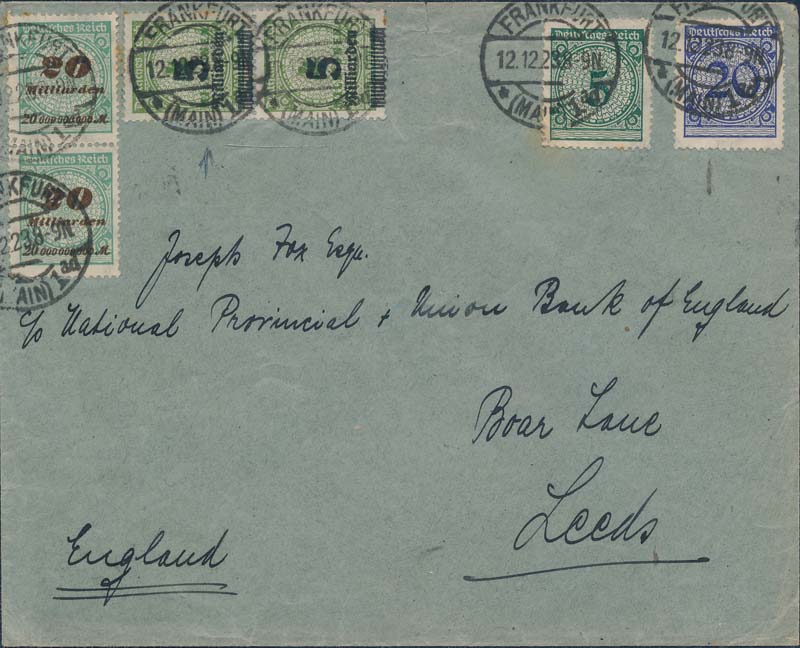 20
Milliarden
20000000000M
Deutsches Reich
20
Milliarden
20000000000M
FRANKFURT
(MAIN) 1
5
Milliarden
FRANKFURT
(MAIN)
5
Milliarden
FRANKFURT
12.12.23.8-9N
(MAIN) 1ad
Deutsches Reich
5
Deutsches Reich
20
Joseph Fox Esqr.
c/o National Provincial + Union Bank of England
Boar Lane
Leeds
England